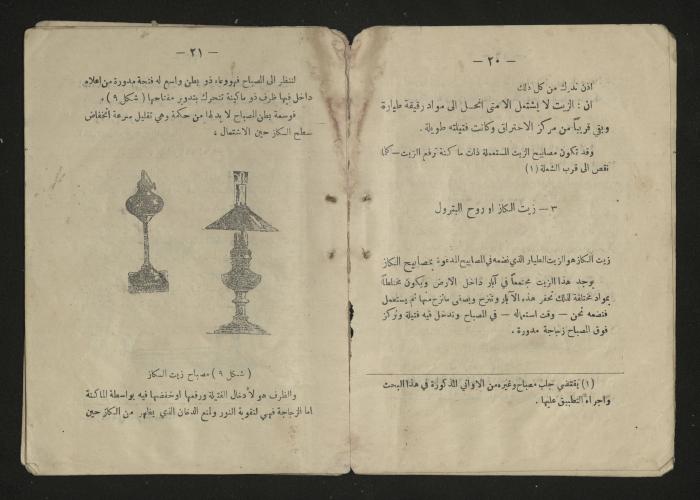 — ٢٠ —
اذن ندرك من كل ذلك
ان : الزيت لا يشتعل الا متى انحل الى مواد رقيقة طيارة
وبقي قريباً من مركز الاحتراق وكانت فتيلته طويلة .
وقد تكون مصابيح الزيت المستعملة ذات ماكنة ترفع الزيت – كلما
نقص الى قرب الشعلة (١)
٣ – زيت الكاز او روح البترول
زيت الكاز هو الزيت الطيار الذي نضعه في المصابيح المدعوة بمصابيح الكاز
يوجد هذا الزيت مجتمعاً في آبار داخل الارض ويكون مختلطاً
بمواد مختلفة لذلك تحفر هذه الآبار وتنزح ويصفى ماينزح منها ثم يستعمل
فنضعه نحن – وقت استعماله – في المصباح وندخل فيه فتيلة ونركز
فوق المصباح زجاجة مدورة .
(١) يقتضي جلب مصباح وغيره من الاواني المذكورة في هذا البحث
واجراء التطبيق عليها .
— ٢١ —
لننظر الى المصباح فهو وعاء ذو بطن واسع له فتحة مدورة من اعلاه
داخل فيها ظرف ذو ماكينة تتحرك بتدوير مفتاحها ( شكل ٩ ) .
فوسعة بطن المصباح لا بد لها من حكمة وهي تقليل سرعة انخفاض
سطح الكاز حين الاشتعال .
( شكل ٩ ) مصباح زيت الكاز
والظرف هو لأدخال الفتيلة ورفعها او خفضها فيه بواسطة الماكنة
اما الزجاجة فهي لتقوية النور ولمنع الدخان الذي يظهر من الكاز حين